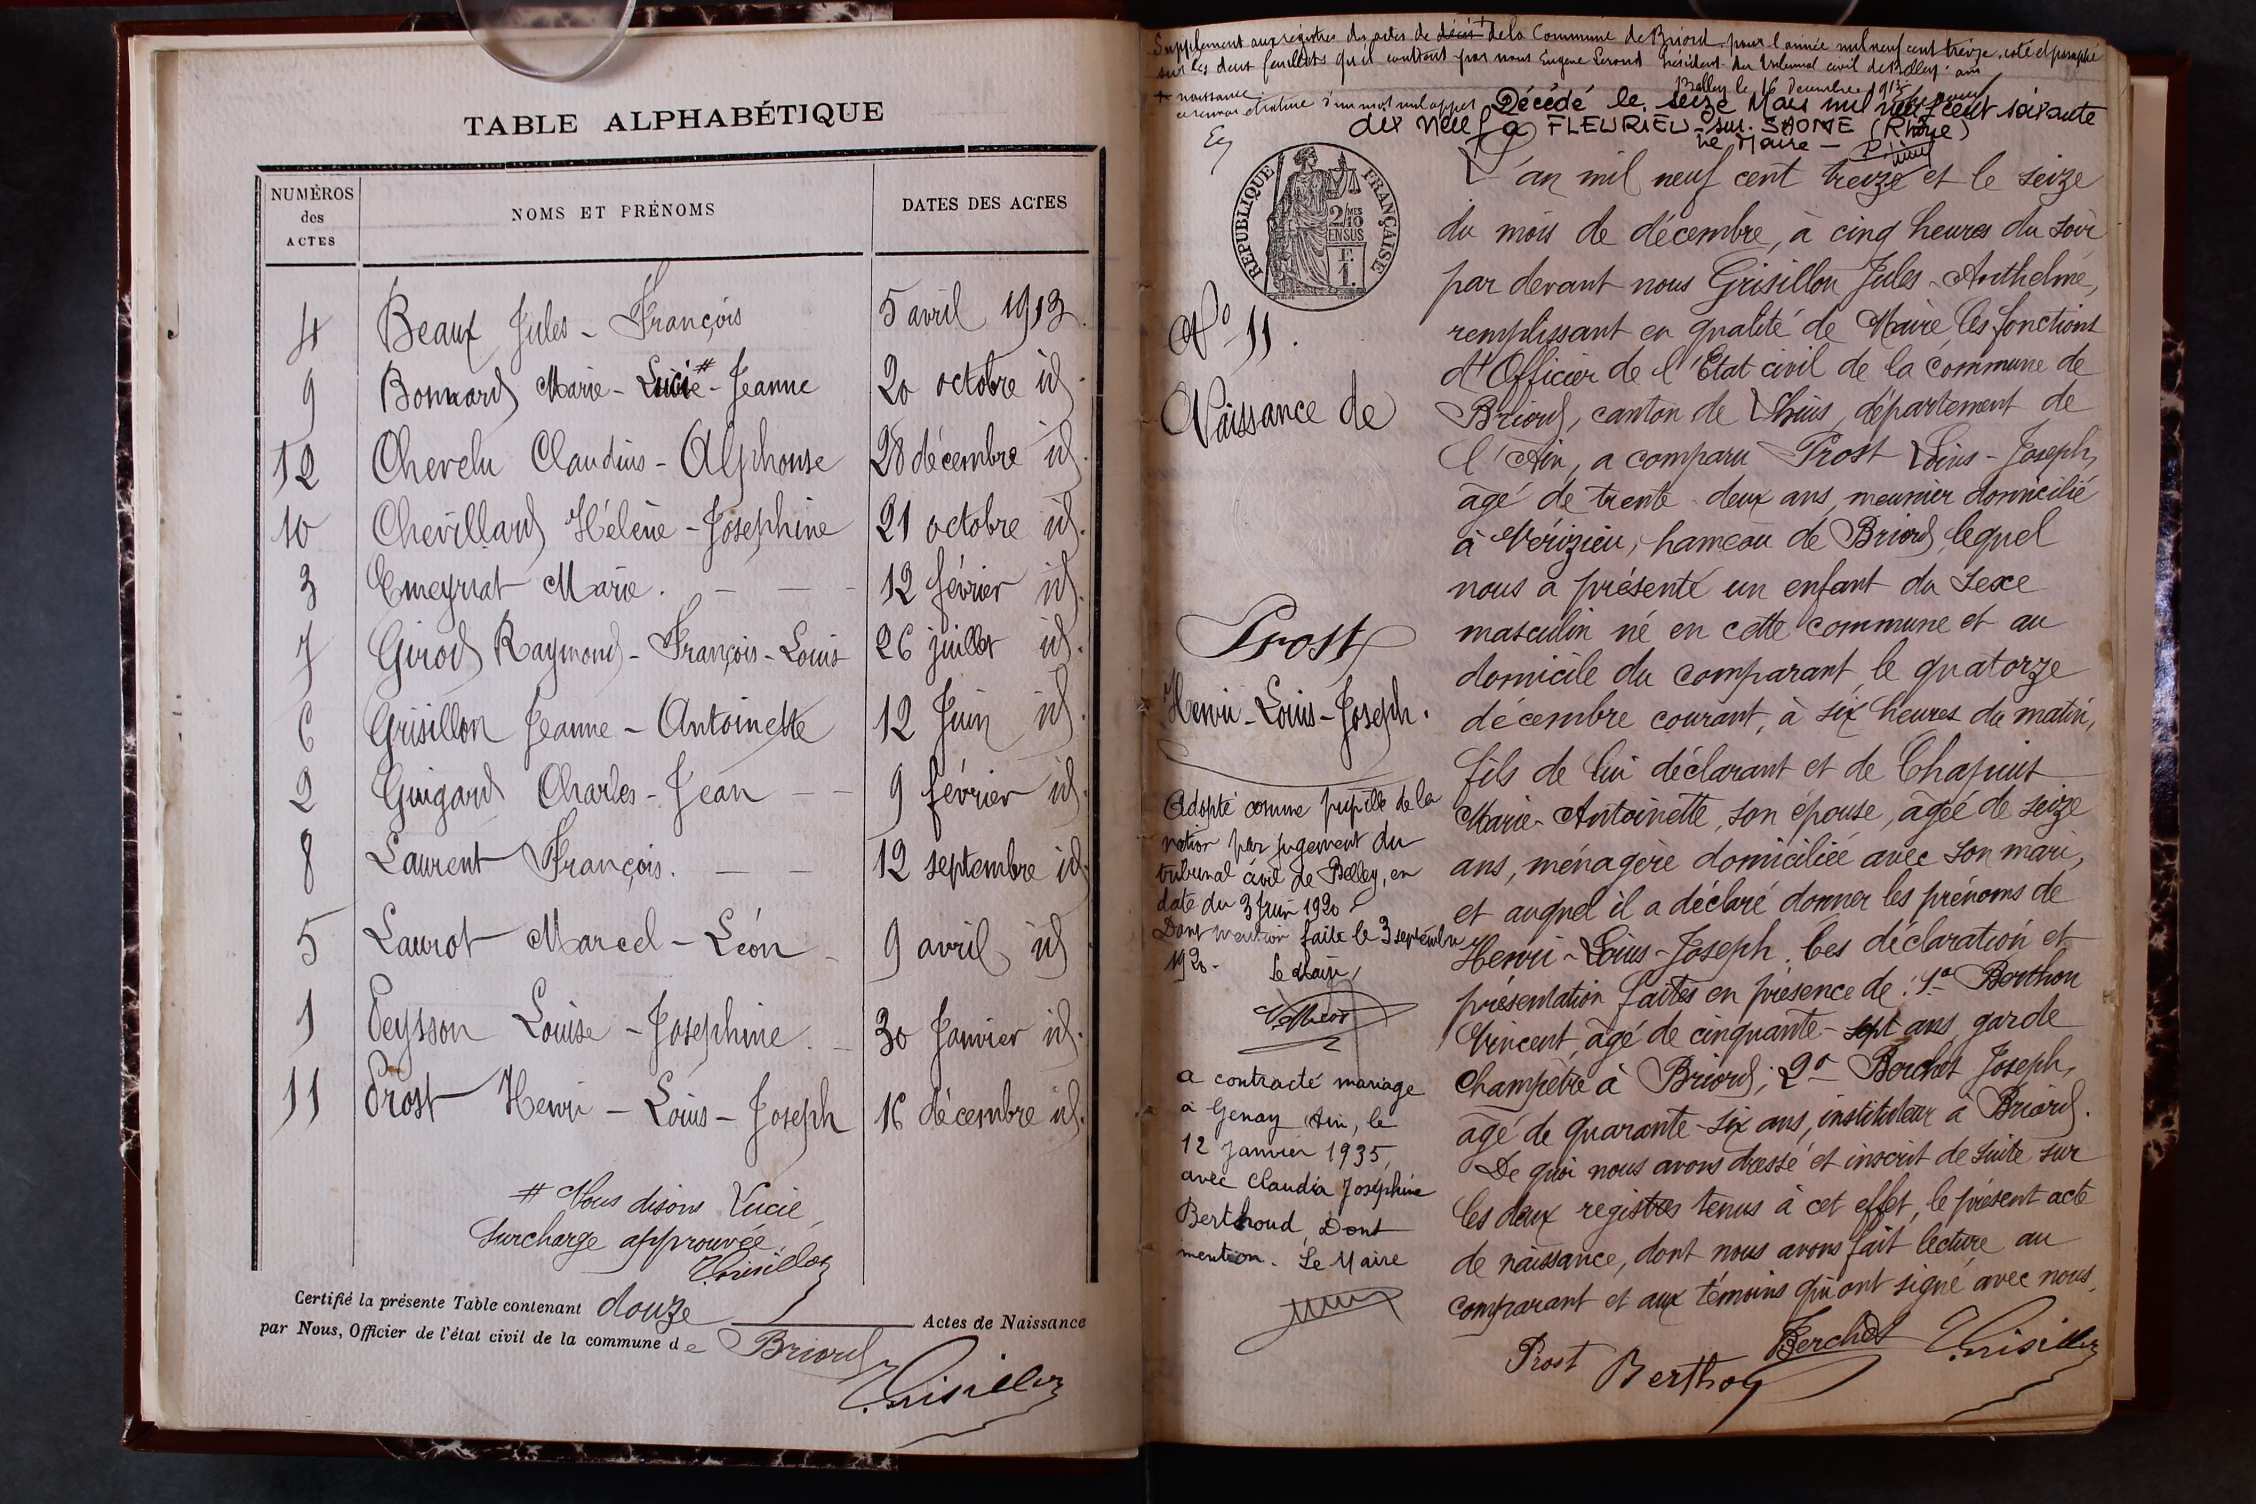 TABLE ALPHABÉTIQUE
NUMÉROS des ACTES NOMS ET PRÉNOMS DATES DES ACTES
4 Beaux Jules - François 5 avril 1913.
9 Bonnard Marie - Lucie # - Jeanne 20 octobre id.
12 Chevelu Claudius - Alphonse 28 décembre id.
10 Chevillard Hélène - Joséphine 21 octobre id.
3 Emeyriat Marie. 12 février id.
7 Girod Raymond - François - Louis 26 juillet id.
6 Grisillon Jeanne - Antoinette 12 Juin id.
2 Guigard Charles - Jean 9 février id.
8 Laurent François. 12 septembre id.
5 Laurot Marcel - Léon 9 avril id
1 Peysson Louise - Joséphine. 30 Janvier id.
11 Prost Henri - Louis - Joseph 16 décembre id.
# Nous disons Lucie,
surcharge approuvée
Grisillon
Certifié la présente Table contenant douze Actes de Naissance
par Nous, Officier de l'état civil de la commune de Briord
Grisillon
Supplément aux registres des actes de décès + de la Commune de Briord pour l'année mil neuf cent treize, coté et paraphé
sur les deux feuillets qu'il contient par nous Eugène Président du Tribunal civil de Belley
Belley le 16 Décembre 1913
+ naissance
Décédé le seize Mars mil neuf cent soixante
dix neuf à FLEURIEU-sur-SAONE (Rhône)
Le Maire -
RÉPUBLIQUE FRANÇAISE
2/10 MES
EN SUS
F.
1.
N° 11.
Naissance de
Prost
Henri - Louis - Joseph.
Adopté comme pupille de la
nation par jugement du
tribunal civil de Belley, en
date du 3 Juin 1920
Dont mention faite le 3 septembre
1920. Le Maire,
a contracté mariage
à Genay Ain, le
12 Janvier 1935,
avec Claudia Joséphine
Berthoud, Dont
mention. Le Maire
L'an mil neuf cent treize et le seize
du mois de décembre, à cinq heures du soir
par devant nous Grisillon Jules - Anthelme,
remplissant en qualité de Maire, les fonctions
d'Officier de l'Etat civil de la commune de
Briord, canton de Lhuis, département de
l'Ain, a comparu Prost Louis - Joseph,
âgé de trente deux ans, meunier domicilié
à Vérizieu, hameau de Briord, lequel
nous a présenté un enfant du sexe
masculin né en cette commune et au
domicile du comparant le quatorze
décembre courant, à six heures du matin,
fils de lui déclarant et de Chapuis
Marie - Antoinette, son épouse, âgée de seize
ans, ménagère domiciliée avec son mari,
et auquel il a déclaré donner les prénoms de
Henri - Louis - Joseph. Ces déclaration et
présentation faites en présence de : 1° Berthon
Vincent, âgé de cinquante - sept ans, garde
champêtre à Briord ; 2° Berchet Joseph,
âgé de quarante - six ans, instituteur à Briord.
De quoi nous avons dressé et inscrit de suite sur
les deux registres tenus à cet effet, le présent acte
de naissance, dont nous avons fait lecture au
comparant et aux témoins qui ont signé avec nous.
Prost Berthon Berchet Grisillon